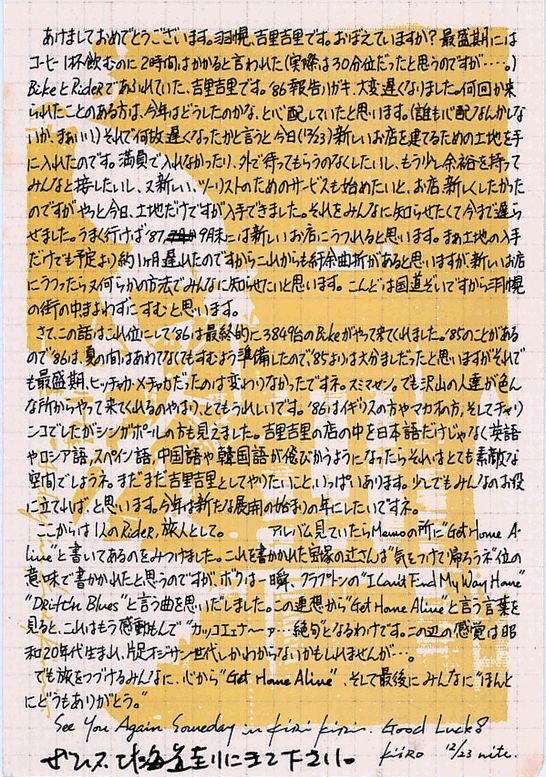 あけましておめでとうございます。羽幌、吉里吉里です。おぼえていますか？最盛期には
コーヒー1杯飲むのに2時間はかかると言われた(実際は30分位だったと思うのですが‥‥。)
BikeとRiderであふれていた、吉里吉里です。'86報告ハガキ、大変遅くなりました。何回か来
られたことのある方は、今年はどうしたのかな、と心配していたと思います。(誰も心配なんかしな
いか、まぁいい)それで何故遅くなったかと言うと今日(12/23)新しいお店を建てるための土地を手
に入れたのです。満員で入れなかったり、外で待ってもらうのなくしたいし、もう少し余裕を持って
みんなと接したいし、又新しい、ツーリストのためのサービスも始めたいと、お店新しくしたかった
のですがやっと今日、土地だけですが入手できました。それをみんなに知らせたくて今まで遅ら
せました。うまく行けば'87 9月末には新しいお店にうつれると思います。まぁ土地の入手
だけでも予定より約1ヶ月遅れたのですからこれからも紆余曲折があると思いますが、新しいお店
にうつったら又何らかの方法でみんなに知らせたいと思います。こんどは国道ぞいですから羽幌
の街の中まよわずにすむと思います。
さて、この話はこれ位にして'86は最終的に3849台のBikeがやって来てくれました。'85のことがある
ので'86は、夏の間はあわてなくてもすむよう準備したので'85よりは大分ましだったと思いますがそれで
も最盛期、ヒッチャカ・メチャカだったのは変わりなかったですネ。スミマセン。でも沢山の人達が色ん
な所からやって来てくれるのやはり、とてもうれしいです。'86はイギリスの方やマカオの方、そしてチャリ
ンコでしたがシンガポールの方も見えました。吉里吉里の店の中を日本語だけじゃなく英語
やロシア語、スペイン語、中国語や韓国語が飛びかうようになったらそれはとても素敵な
空間でしょうネ。まだまだ吉里吉里としてやりたいこと、いっぱいあります。少しでもみんなのお役
に立てれば、と思います。今年は新たな展開の始まりの年にしたいですネ。
ここからは1人のRider、旅人として。 アルバム見ていたらMemoの所に"Get Home A-
live"と書いてあるのをみつけました。これを書かれた宝塚の辻さんは"気をつけて帰ろうネ"位の
意味で書かれたと思うのですが、ボクは一瞬、クラプトンの"I Can't Find My Way Home"
"Driftin Blues"と言う曲を思いだしました。この連想から"Get Home Alive"と言う言葉を
見ると、これはもう感動もんで"カッコエェナ〜ァ…絶句"となるわけです。この辺の感覚は昭
和20年代生まれ、片足オジサン世代しかわからないかもしれませんが…。
でも旅をつづけるみんなに、心から"Get Home Alive"、そして最後にみんなに"ほんと
にどうもありがとう。"
See You Again Someday in Kiri Kiri. Good Luck!
北海道
に来て下さい。 KiiRO 12/23 nite.